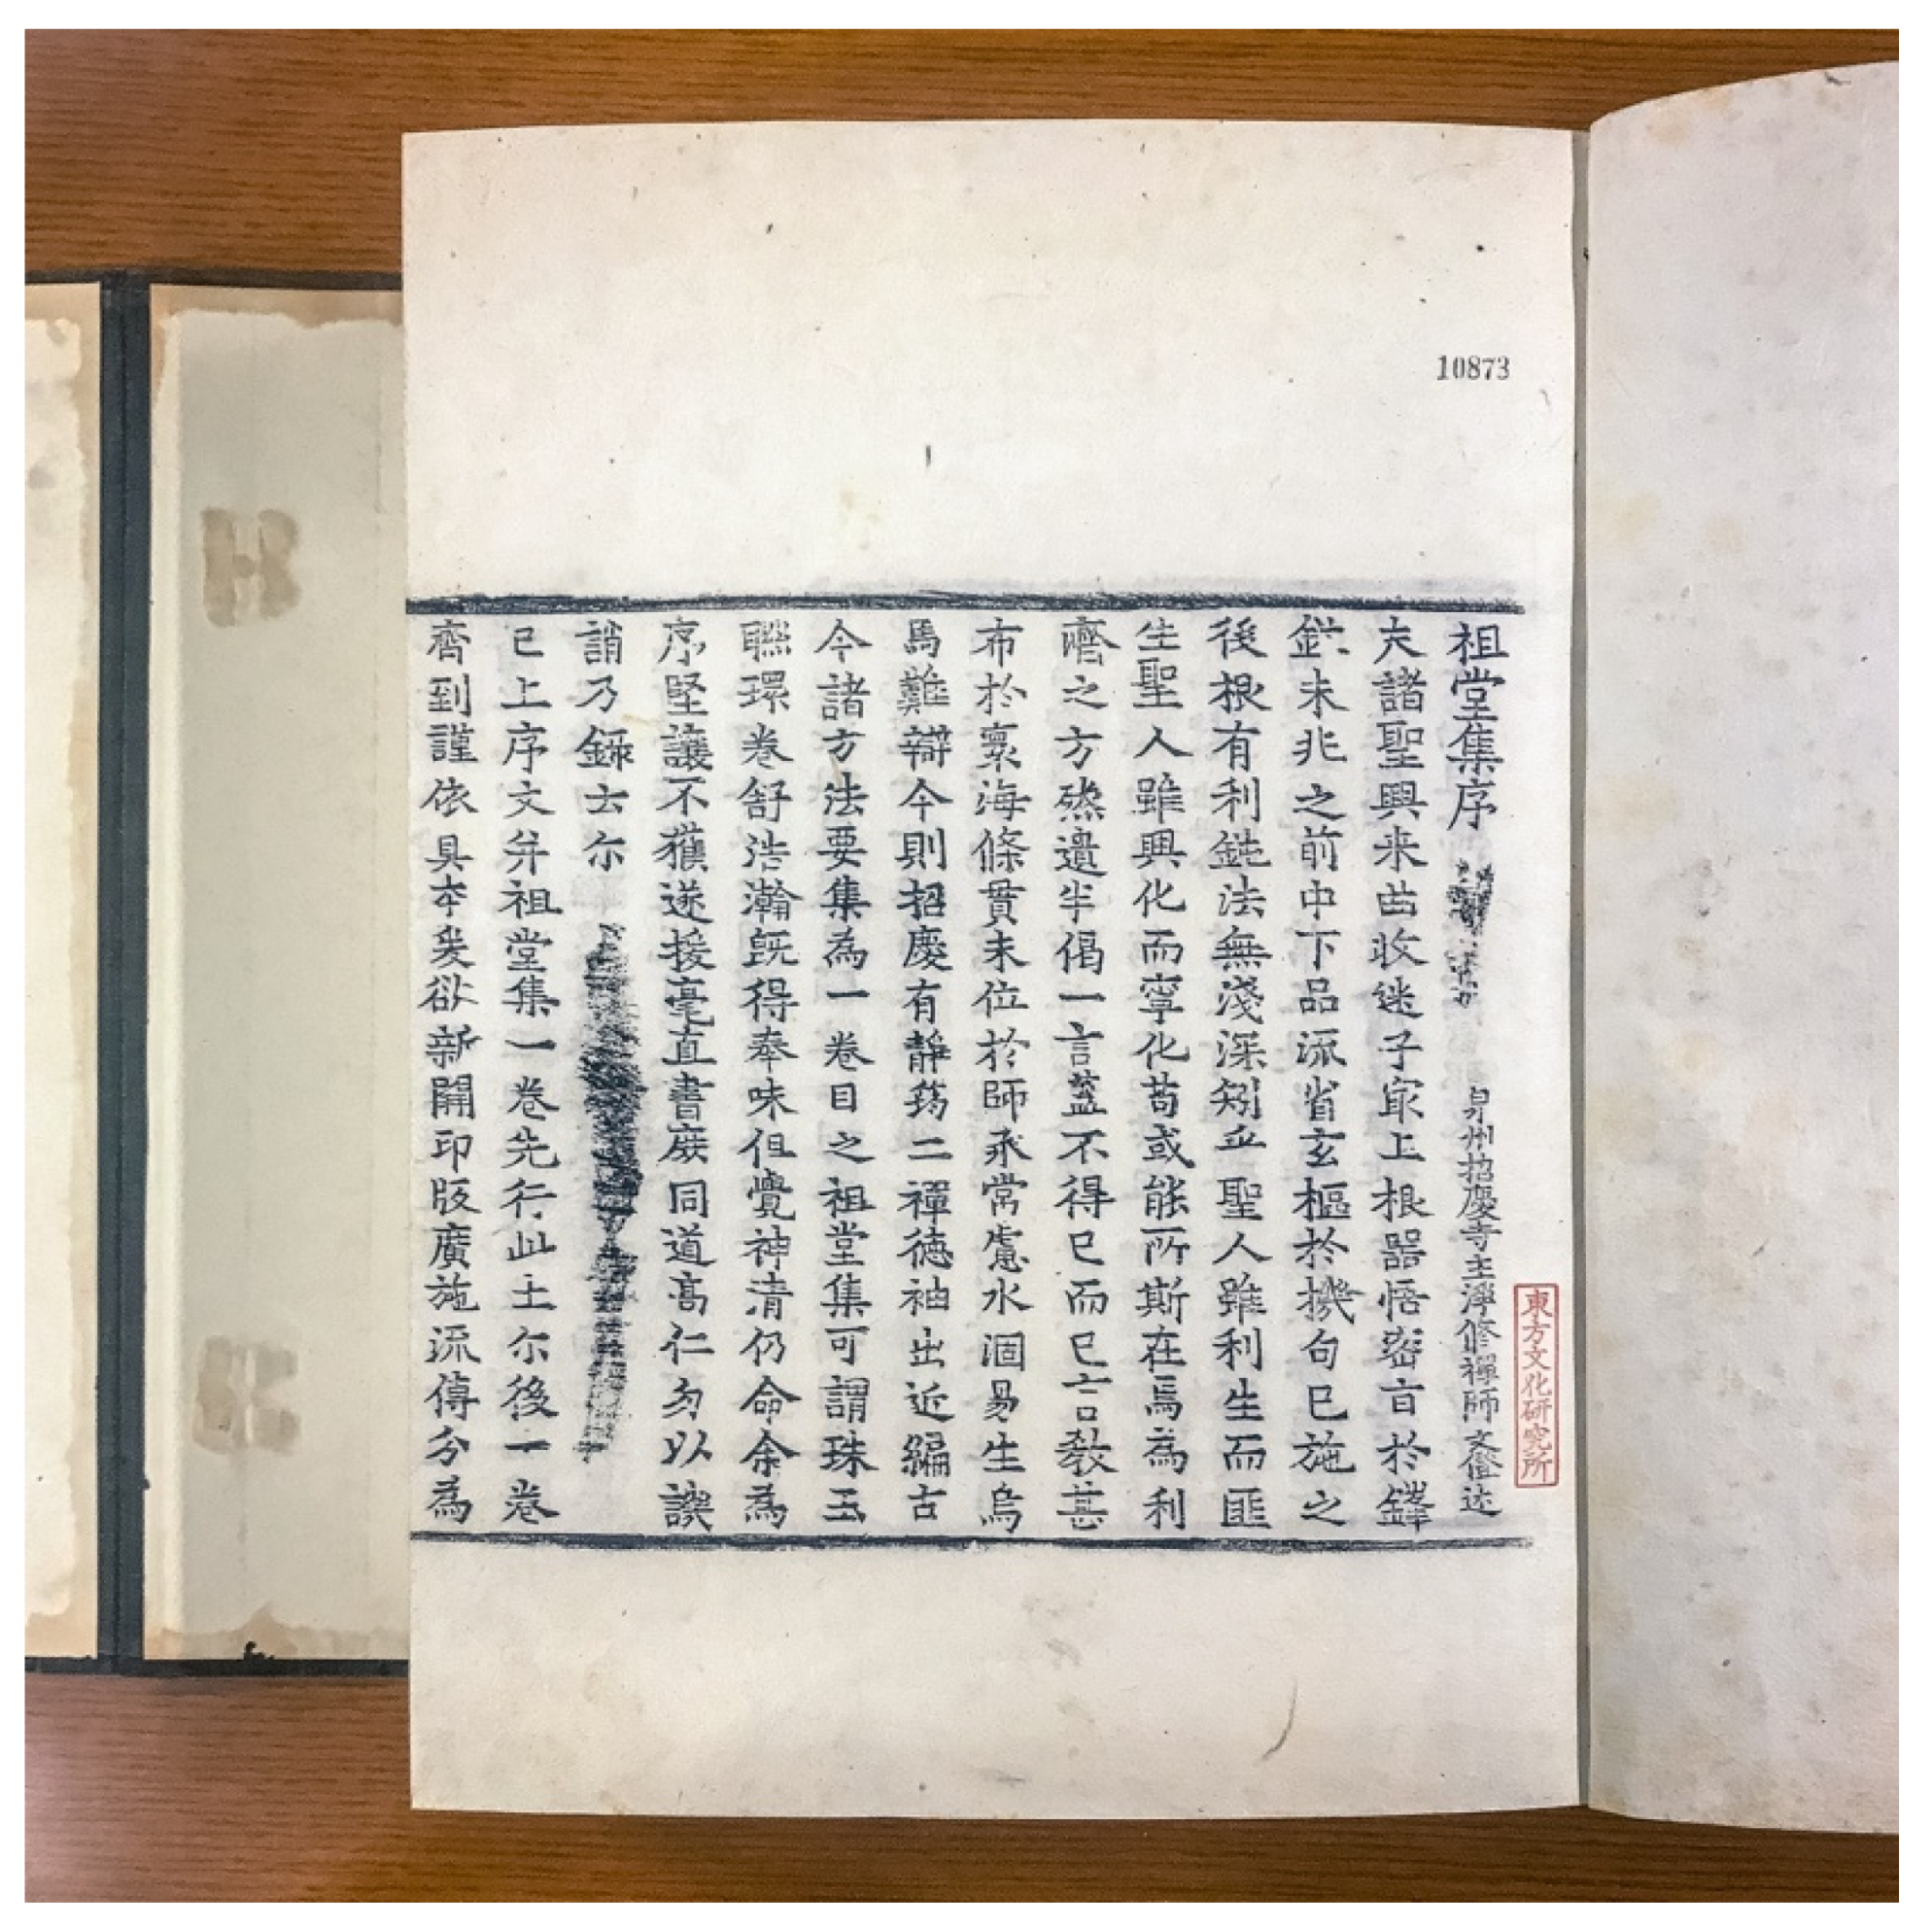 10873
祖堂集序
泉州招慶寺主淨修禪師文僜述
東方文化研究所
夫諸聖興来曲收迷子㝡上根器悟密旨於鋒
鋩未兆之前中下品流省玄樞於機句已施之
後根有利鈍法無淺深矧乎聖人雖利生而匪
生聖人雖興化而寧化苟或能所斯在焉為利
濟之方然遺半偈一言蓋不得已而已言教甚
布於寰海條貫未位於師承常慮水涸易生烏
馬難辯今則招慶有靜筠二禪德袖出近編古
今諸方法要集為一卷目之祖堂集可謂珠玉
聮環卷舒浩瀚既得奉味但覺神清仍命余為
序堅讓不獲遂援毫直書庶同道髙仁勿以譔
誚乃錄云尔
已上序文并祖堂集一卷先行此土尔後一卷
齊到謹依具夲爰欲新開印版廣施流傳分為